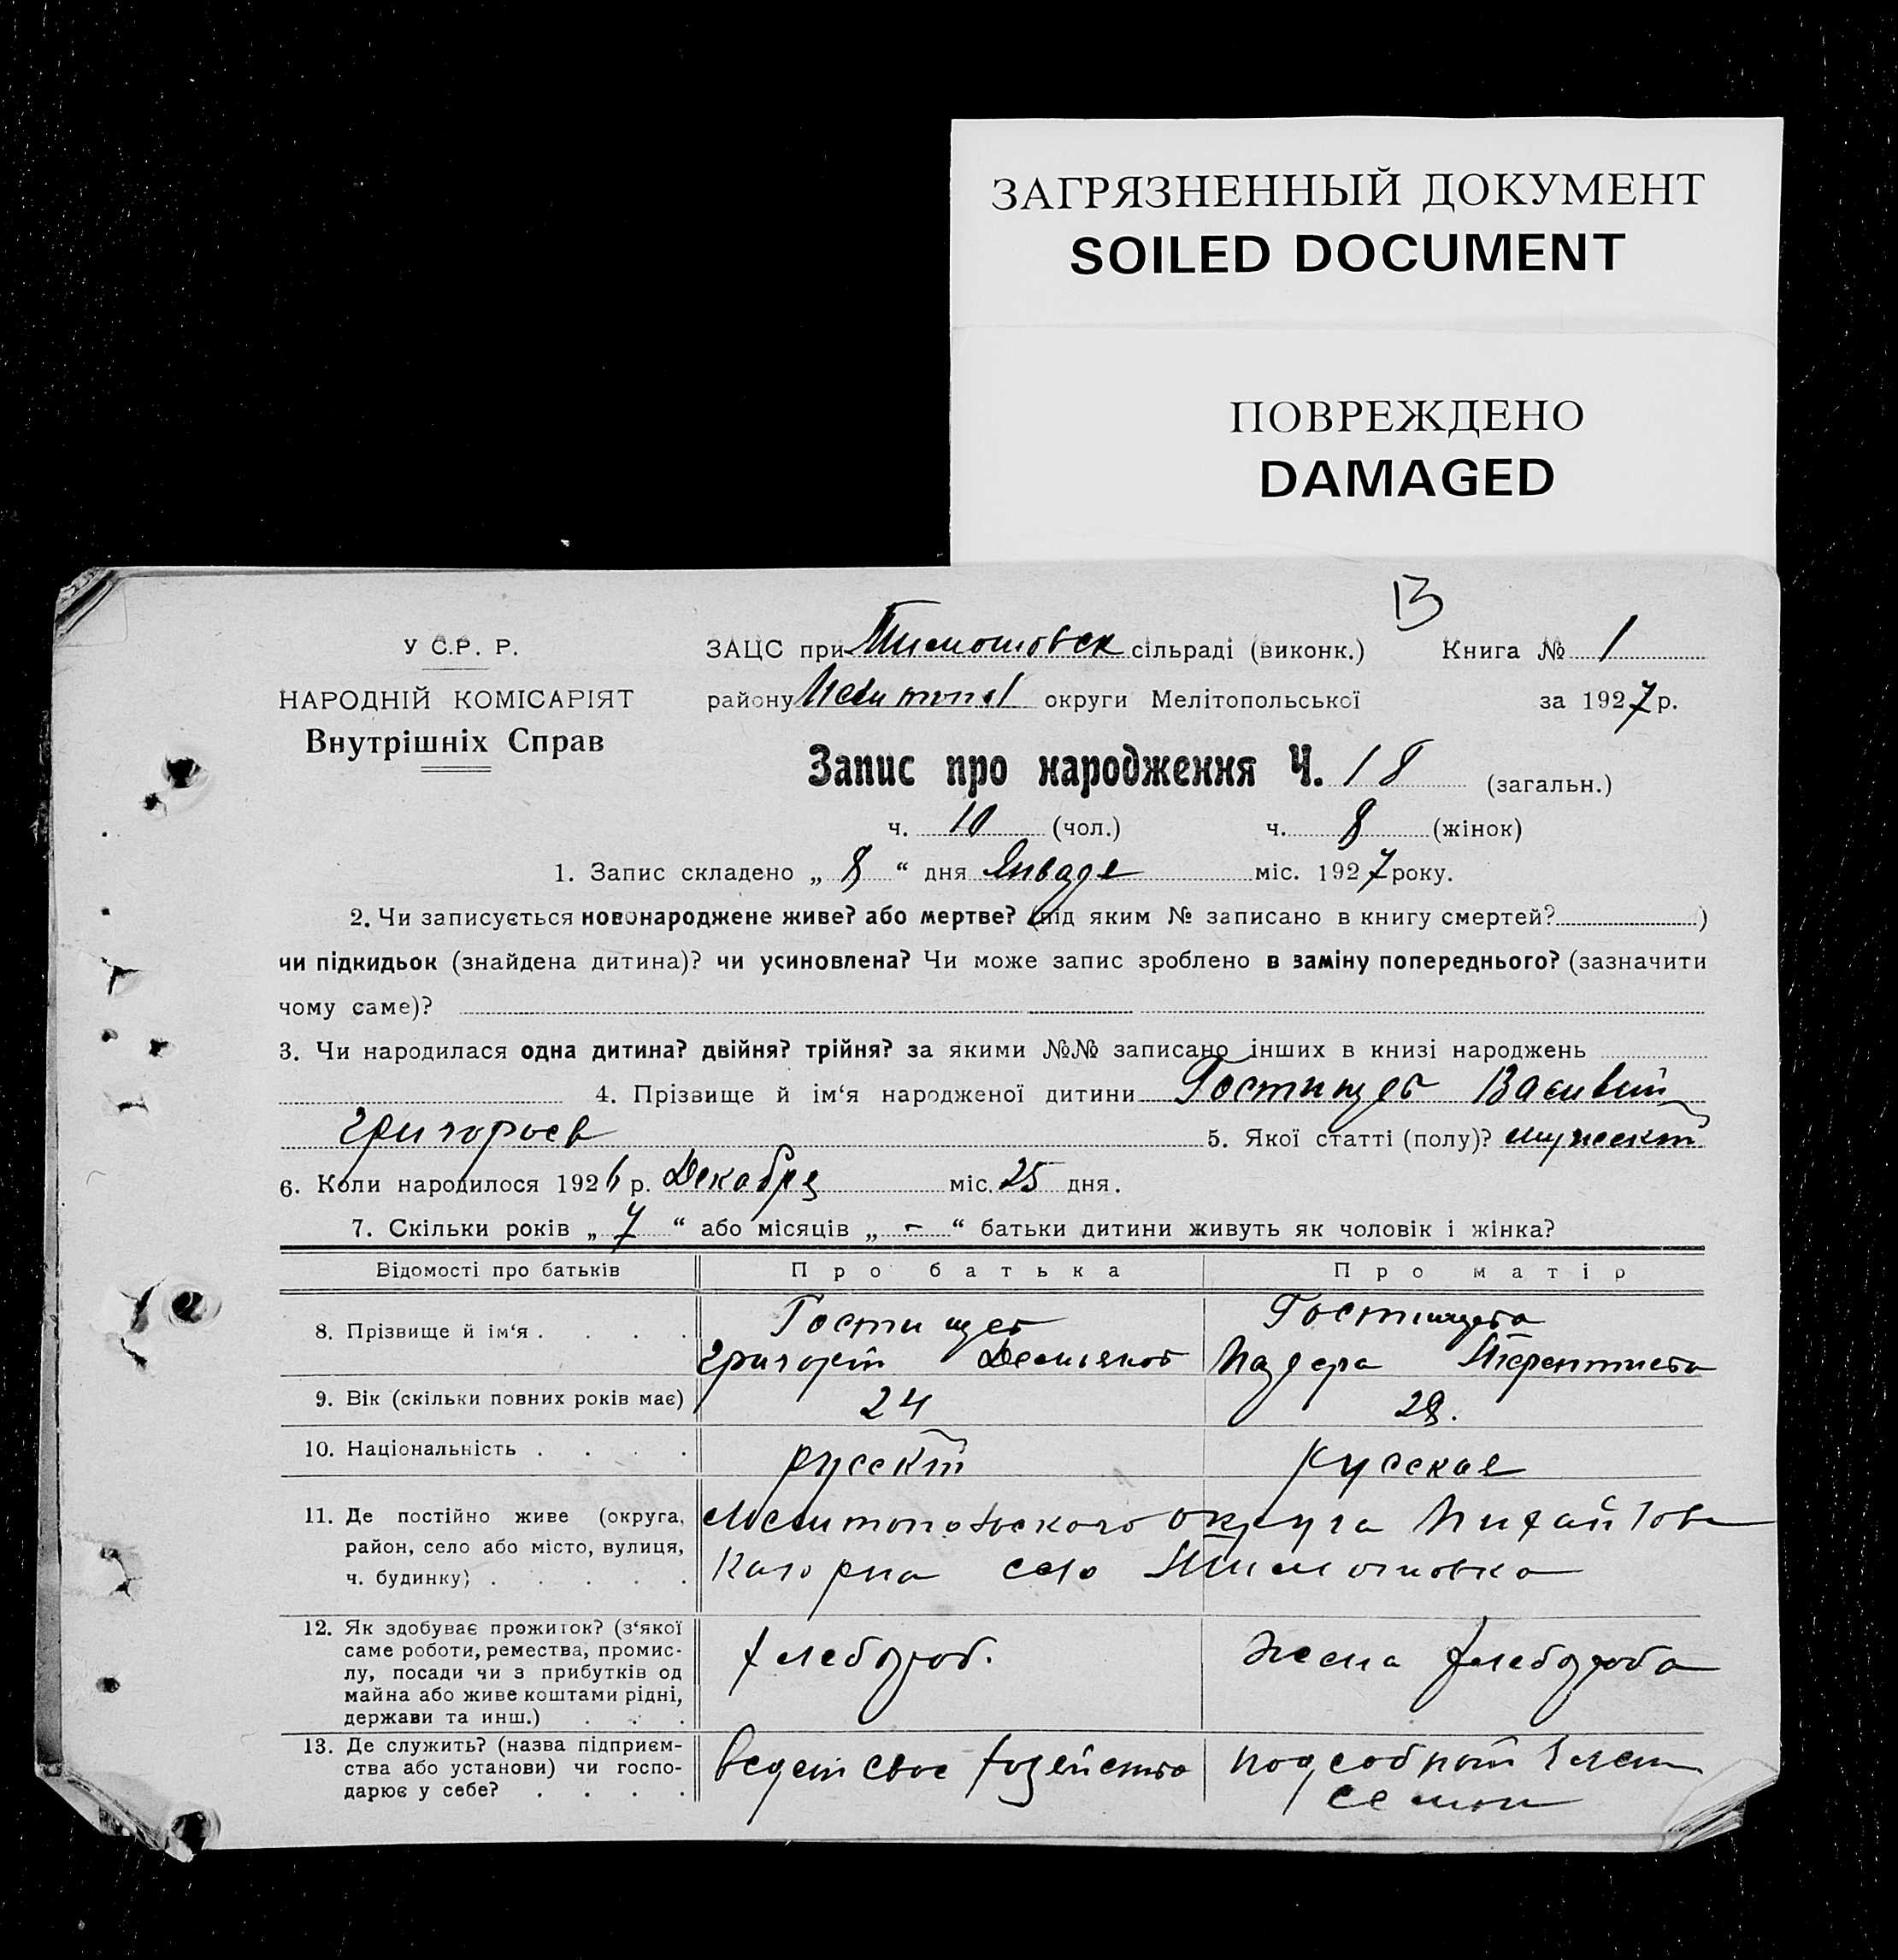 ЗАГРЯЗНЕННЫЙ ДОКУМЕНТ
SOILED DOCUMENT
ПОВРЕЖДЕНО
DAMAGED
13
У С.Р. Р.
ЗАЦС при Тимошовск сільраді (виконк.) Книга № 1
НАРОДНІЙ КОМІСАРІЯТ
району округи Мелітопольської за 1927 р.
Внутрішніх Справ
Запис про народження Ч. 18 (загальн.)
ч. 10 (чол.) ч. 8 (жінок)
1. Запис складено „ 8 “ дня Января міс. 1927 року.
2. Чи записується новонароджене живе? або мертве? (під яким № записано в книгу смертей? )
чи підкидьок (знайдена дитина)? чи усиновлена? Чи може запис зроблено в заміну попереднього? (зазначити
чому саме)?
3. Чи народилася одна дитина? двійня? трійня? за якими №№ записано інших в книзі народжень
4. Прізвище й ім‘я народженої дитини Гостищев Василий
Григорьев 5. Якої статті (полу)? мужской
6. Коли народилося 1926 р. Декабря міс. 25 дня.
7. Скільки років „ 7 “ або місяців „ - “ батьки дитини живуть як чоловік і жінка?
Відомості про батьків Про батька Про матір
8. Прізвище й ім‘я . . . . Гостищев Гостищева
Григорий Демьянов Терентиева
9. Вік (скільки повних років має) 24 28.
10. Національність . . . . русский русская
11. Де постійно живе (округа, Мелитопольского округа Михайлов
район, село або місто, вулиця,
ч. будинку) . . . . . село Тимошовка
12. Як здобуває прожиток? (з‘якої
саме роботи, ремества, промис-
лу, посади чи з прибутків од хлебороб. жена хлебороба
майна або живе коштами рідні,
держави та инш.) . . .
13. Де служить? (назва підприєм-
ства або установи) чи госпо- ведет свое хозяйство подсобный член
дарює у себе? . . . . семьи